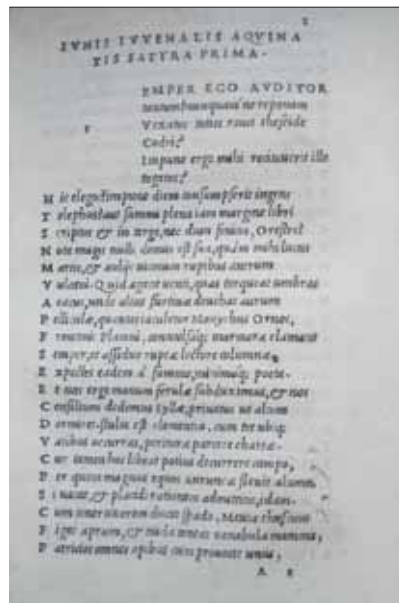 I
IVNII IVVENALIS AQVINA
TIS SATYRA PRIMA.
s EMPER EGO AVDITOR
tantum? nunquam'ne reponam
Vexatus toties rauci theseide
Codri?
Impune ergo mihi recitauerit ille
togatas?
H ic elegos? impune diem consumpserit ingens
T elephus? aut summi plena iam margine libri
S criptus, & in tergo, nec dum finitus, Orestes?
N ota magis nulli domus est sua, quàm mihi lucus
M artis, & aeoliis uicinum rupibus antrum
V ulcani. Quid agant uenti, quas torqueat umbras
A eacus, unde alius furtiuae deuehat aurum
P elliculae, quantas iaculetur Monychus Ornos,
F rontonis platani, conuulsaq; marmora clamant
S emper, et assiduo ruptae lectore columnae.
E xpectes eadem à summo, minimoq; poeta.
E t nos ergo manum ferulae subduximus, & nos
C onsilium dedimus Syllae, priuatus ut altum
D ormiret. stulta est clementia, cum tot ubiq;
V atibus occurras, periturae parcere chartae.
C ur tamen hoc libeat potius decurrere campo,
P er quem magnus equos auruncae flexit alumnus,
S i uacat, & placidi rationem admittitis, edam.
C um tener uxorem ducat spado, Meuia thuscum
F igat aprum, & nuda teneat uenabula mamma,
P atricios omnes opibus cum prouocet unus,
A 2